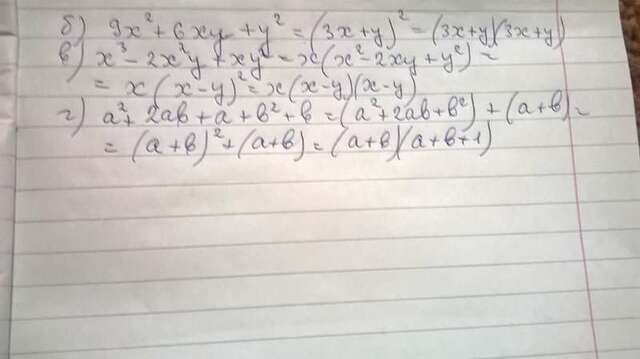 б) 9x² + 6xy + y² = (3x+y)² = (3x+y)(3x+y)
в) x³ - 2x²y + xy² = x(x² - 2xy + y²) =
= x(x-y)² = x(x-y)(x-y)
г) a² + 2ab + a + b² + b = (a² + 2ab + b²) + (a+b) =
= (a+b)² + (a+b) = (a+b)(a+b+1)